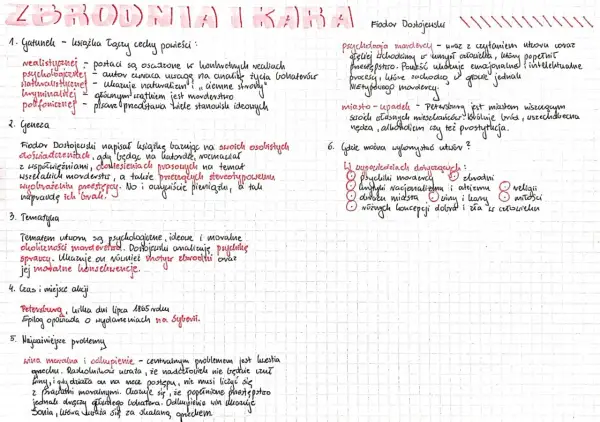 ZBRODNIA I KARA
Fiodor Dostojewski
1. Gatunek - książka łączy cechy powieści:
realistycznej - postaci są osadzone w konkretnych realiach
psychologicznej - autor zwraca uwagę na analizę życia bohaterów
naturalistycznej - ukazuje naturalizm i "ciemne strony"
kryminalnej - głównym wątkiem jest morderstwo
polifonicznej - pisarz przedstawia wiele stanowisk ideowych
2. Geneza
Fiodor Dostojewski napisał książkę bazując na swoich osobistych
doświadczeniach, gdy będąc na katordze, rozmawiał
z współwięźniami, doniesieniach prasowych na temat
wszelakich morderstw, a także przeczących stereotypowemu
wyobrażeniu przestępcy. No i oczywiście pieniądze, a tak
naprawdę ich brak.
3. Tematyka
Tematem utworu są psychologiczne, ideowe i moralne
okoliczności morderstwa. Dostojewski analizuje psychikę
sprawcy. Ukazuje on również motyw zbrodni oraz
jej moralne konsekwencje.
4. Czas i miejsce akcji
Petersburg, kilka dni lipca 1865 roku
Epilog opowiada o wydarzeniach na Syberii.
5. Najważniejsze problemy
wina moralna i odkupienie - centralnym problemem jest kwestia
grzechu. Raskolnikow uważa, że nadczłowiek nie będzie czuł
winy, i gdy działa on na rzecz postępu, nie musi liczyć się
z prawami moralnymi. Okazuje się, że popełnione przestępstwo
jednak dręczy głównego bohatera. Odkupienie win ukazuje
Sonia, która uważa się za skalaną grzechem.
psychologia mordercy - wraz z czytaniem utworu coraz
głębiej wchodzimy w umysł człowieka, który popełnił
przestępstwo. Powieść ukazuje emocjonalne i intelektualne
procesy, które zachodzą w głowie jednak
nietypowego mordercy.
miasto - upadek - Petersburg jest miastem niszczącym
swoich własnych mieszkańców. Króluje brud, wszechobecna
nędza, alkoholizm czy też prostytucja.
6. Gdzie można wykorzystać utwór?
W wypowiedziach dotyczących:
psychiki mordercy zbrodni
krytyki racjonalizmu i ateizmu religii
obrazu miasta winy i kary miłości
różnych koncepcji dobra i zła w człowieku